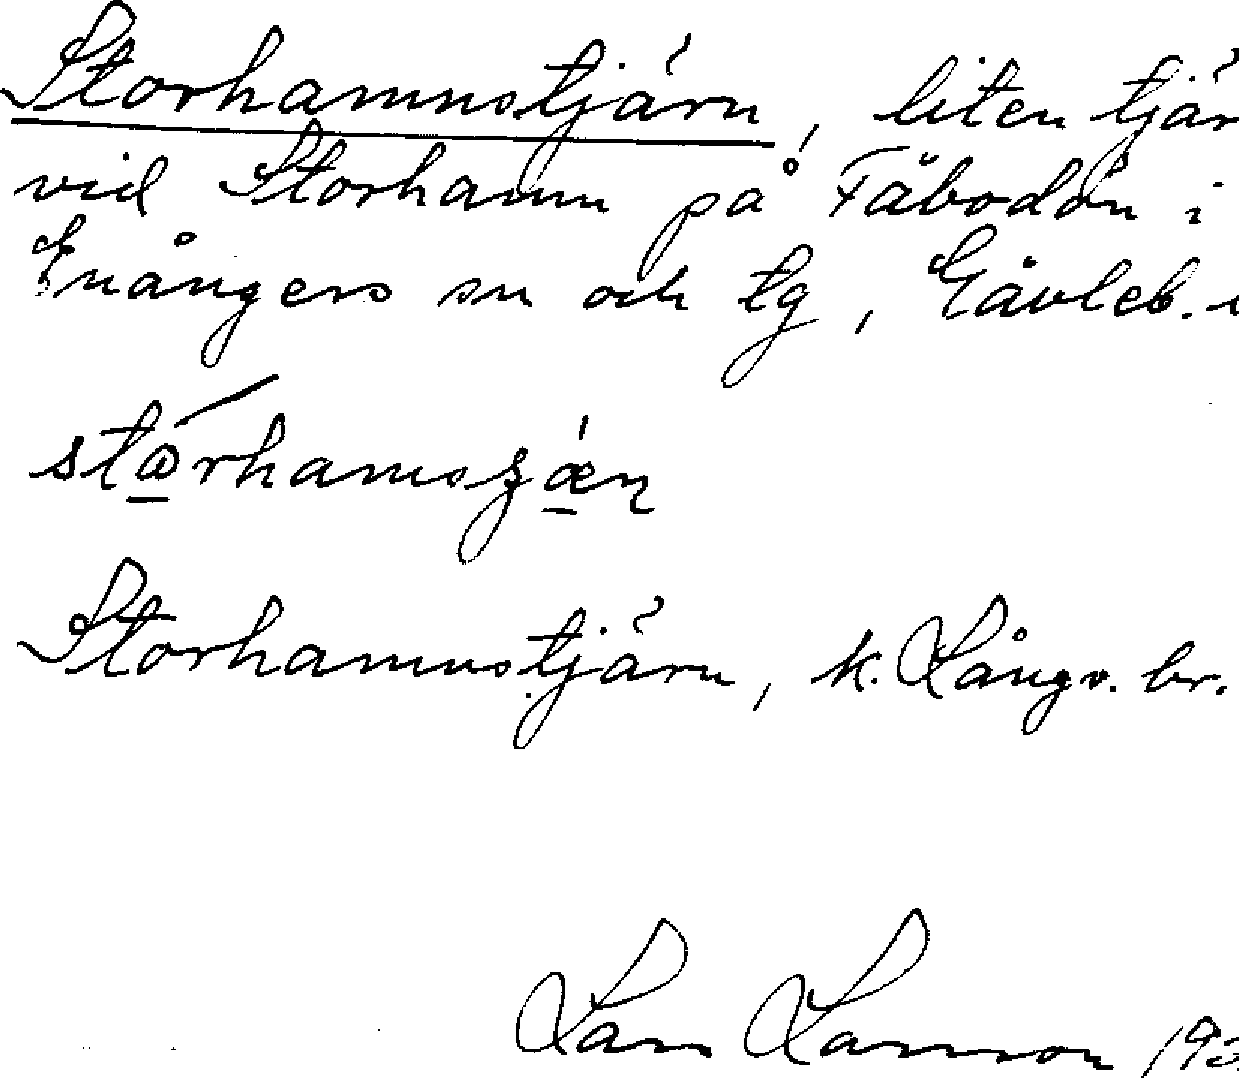 Storhamnstjärn, liten tjär
vid Storhamn på Fäbodön i
Enångers sn och tg, Gävleb.
Storhamnstjärn, k. Långv. br.
Lars Larsson 193